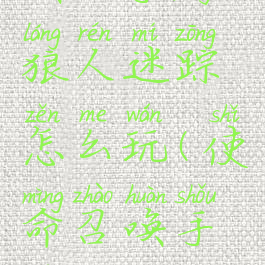 láng rén mí zōng
狼人迷踪
zěn me wán shǐ
怎么玩(使
mìng zhào huàn shǒu
命召唤手